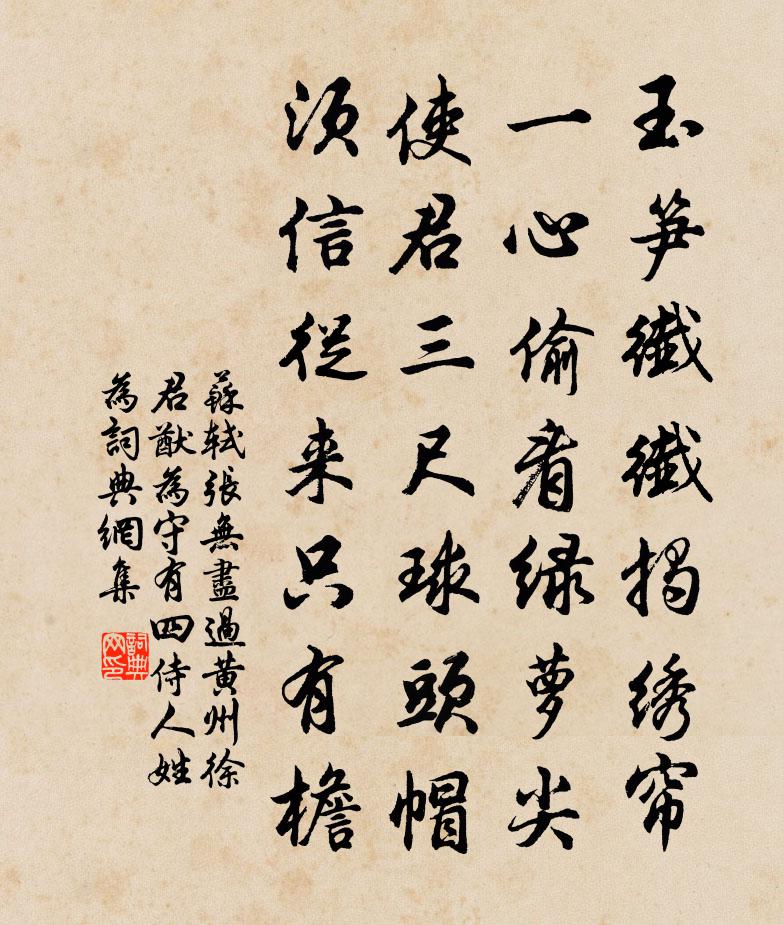 玉笋纖纖揭绣帘
一心偷看绿萝尖
使君三尺球頭帽
须信從来只有檐
蘇軾張無盡過黃州徐
君猷為守有四侍人姓
為詞典網集
詞典网印